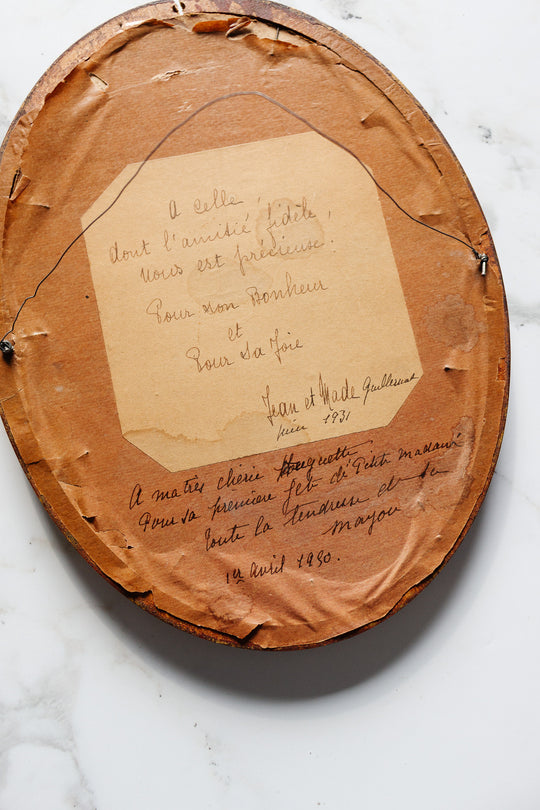 A celle,
dont l'amitié fidèle,
nous est précieuse!
Pour son Bonheur
et
Pour sa Joie
Jean et Made Guillermat
juin 1931
A ma très chérie Huguette
Pour sa première fête de Petite Madame
toute la tendresse de sa
Mayou
1er avril 1930.